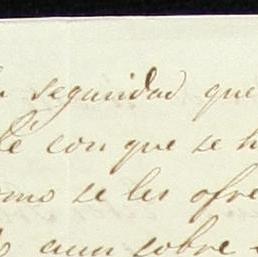 seguridad que
con que se h
omo se les ofre
aun sobre